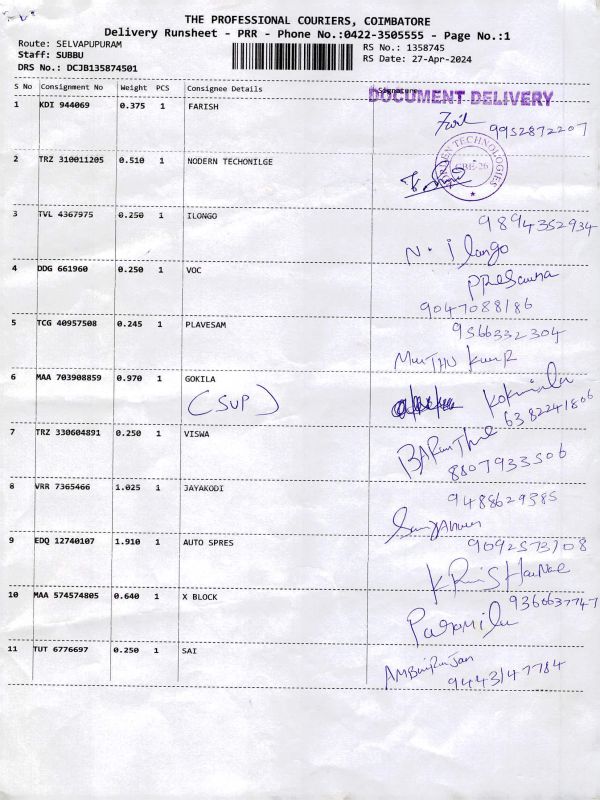 THE PROFESSIONAL COURIERS, COIMBATORE
Delivery Runsheet - PRR - Phone No.:0422-3505555 - Page No.:1
Route: SELVAPUPURAM
Staff: SUBBU
DRS No.: DCJB135874501
RS No.: 1358745
RS Date: 27-Apr-2024
S No Consignment No Weight PCS Consignee Details Signature
DOCUMENT DELIVERY
1 KDI 944069 0.375 1 FARISH
9952872207
2 TRZ 310011205 0.510 1 NODERN TECHONILGE
TECHNOLOGIES
CBE-26
3 TVL 4367975 0.250 1 ILONGO
9894352934
N. Ilango
4 DDG 661960 0.250 1 VOC
9047088186
5 TCG 40957508 0.245 1 PLAVESAM
9566332304
6 MAA 703908859 0.970 1 GOKILA
(SUP)
6382241806
7 TRZ 330604891 0.250 1 VISWA
8807933506
8 VRR 7365466 1.025 1 JAYAKODI
9488629385
9 EDQ 12740107 1.910 1 AUTO SPRES
9092573108
10 MAA 574574805 0.640 1 X BLOCK
9366637747
11 TUT 6776697 0.250 1 SAI
9443147784